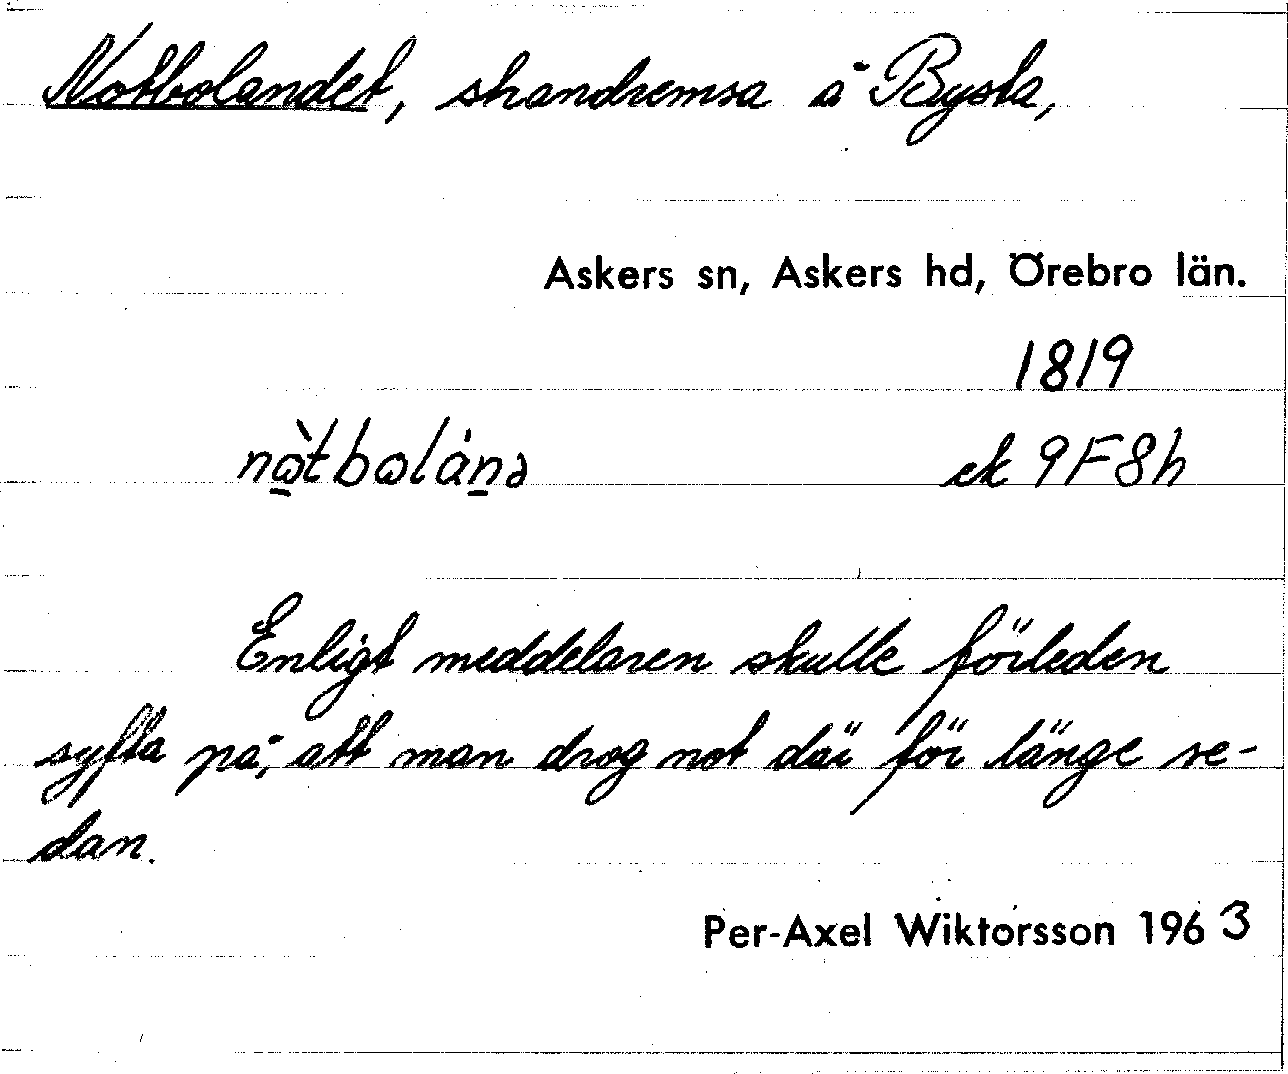 Notbolandet, strandremsa å Bysta,
Askers sn, Askers hd, Örebro län.
1819
nὼtbωlánə ek 9F8h
Enligt meddelaren skulle förleden
syfta på, att man drog not där för länge se-
dan.
Per-Axel Wiktorsson 1963